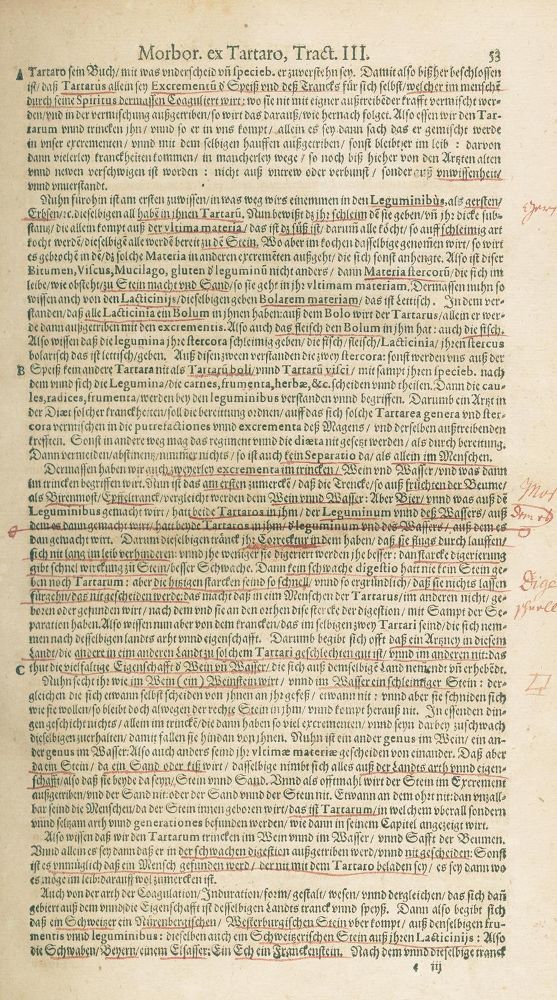 Morbor. ex Tartaro, Tract. III. 53
A Tartaro sein Buch/ mit was vnderscheid vñ specieb. er zuverstehn sey. Damit also bißher beschlossen
ist/ daß Tartarus allein sey Excrementũ d' Speiß vnd deß Trancks für sich selbst/ welcher im menschẽ
durch seine Spiritus dermassen Coaguliert wirt: wo sie nit mit eigner außtreibẽder krafft vermischt wer-
den/ vnd in der vermischung außgetriben/ so wirt das darauß/ wie hernach folget. Also essen wir den Tar-
tarum vnnd trincken jhn/ vnnd so er in vns kompt/ allein es sey dann sach das er gemischt werde
in vnser excrementen/ vnnd mit dem selbigen hauffen außgetriben/ sonst bleibt er im leib: darvon
dann vielerley kranckheiten kommen/ in mancherley wege/ so noch biß hieher von den Artzten alten
vnnd newen verschwigen ist worden: nicht auß vntrew oder verbunst/ sonder auß vnwissenheit/
vnd vnuerstandt.
Nuhn fürohin ist am ersten zuwissen/ in was weg wirs einemmen in den Leguminibùs, als gersten/
Erbsen/ ꝛc. dieselbigen all habẽ in jhnen Tartarũ. Nun bewißt dz jhr schleim dẽ sie geben/ vñ jhr dicke sub-
stantz/ die allein kompt auß der vltima materia/ das ist dz süß ist/ darum̃ alle kócht/ so auff schleimig art
kocht werdẽ/ dieselbigẽ alle werdẽ bereit zu dẽ Stein. Wo aber im kochen dasselbige genom̃en wirt/ so wirt
es gebrochẽ in dẽ/ dz solche Materia in anderen excremẽten außgeht/ die sich sonst anhengte. Also ist diser
Bitumen, Viscus, Mucilago, gluten d' leguminũ nicht anders/ dann Materia stercorũ/ die sich im
leibe/ wie obsteht/ zu Stein macht vnd Sand/ so sie geht in jhr vltimam materiam. Dermassen nuhn so
wissen auch von den Lacticinijs/ dieselbigen geben Bolarem materiam/ das ist Lettisch. In dem ver-
standen/ daß alle Lacticinia ein Bolum in jhnen haben: auß dem Bolo wirt der Tartarus/ allein er wer-
de dann außgetriben mit den excrementis. Also auch das fleisch den Bolum in jhm hat: auch die fisch.
Also wissen daß die legumina jhre stercora schleimig geben/ die fisch/ fleisch/ Lacticinia/ jhren stercus
bolarisch das ist lettisch/ geben. Auß disen zwen verstanden die zwey stercora: sonst werden vns auß der
B Speiß kein andere Tartara nit als Tartarũ boli/ vnnd Tartarũ visci/ mit sampt jhren specieb. nach
dem vnnd sich die Legumina/ die carnes, frumenta, herbæ, &c. scheiden vnnd theilen. Dann die cau-
les, radices, frumenta, werden bey den leguminibus verstanden vnnd begriffen. Darumb ein Artzt in
der Diæt solcher kranckheiten/ soll die bereittung ordnen/ auff das sich solche Tartarea genera vnd ster-
cora vermischen in die putrefactiones vnnd excrementa deß Magens/ vnd derselben außtreibenden
krefften. Sonst in andere weg mag das regiment vnnd die diæta nit gesetzt werden/ als durch bereitung.
Dann vermeiden/ abstinentz/ nimmer nichts/ so ist auch kein Separatio da/ als allein im Menschen.
Dermassen haben wir auch zweyerley excrementa im trincken/ Wein vnd Wasser/ vnd was dann
im trincken begriffen wirt. Nun ist das am ersten zumerckẽ/ daß die Trencke/ so auß früchten der Beume/
als Birenmost/ Epffeltranck/ vergleicht werden dem Wein vnnd Wasser: Aber Bier/ vnnd was auß dẽ
Leguminibus gemacht wirt/ hatt beide Tartaros in jhm/ der Leguminum vnnd deß Wassers/ auß
dem es dann gemacht wirt/ hatt beyde Tartaros in jhm/ d' leguminum vnd des Wassers/ auß dem es
dan gemacht wirt. Darum dieselbigen tränck jhr Correctur in dem haben/ daß sie fluͦgs durch lauffen/
sich nit lang im leib verhinderen: vnnd jhe weniger sie digeriert werden jhe besser: dan starcke digerierung
gibt schnel wirckung zu Stein/ besser Schwache. Dann kein schwache digestio hatt nie kein Stein ge-
ben noch Tartarum: aber die hitzigen starcken seind so schnell/ vnnd so ergründlich/ daß sie nichts lassen
fürgehn/ das nit gescheiden werde: das macht daß in eim Menschen der Tartarus/ im anderen nicht/ ge-
boren oder gefunden wirt/ nach dem vnd sie an den orthen dise stercke der digestion/ mit Sampt der Se-
paration haben. Also wissen nun aber von dem trancken/ das im selbigen zwey Tartari seind/ die sich nem-
men nach desselbigen landes arht vnnd eigenschafft. Darumb begibt sich offt daß ein Artzney in diesem
Landt/ die andere in eim anderen Land zu solchem Tartari geschlechten gut ist/ vnnd im anderen nit: das
thut die vielfaltige Eigenschafft d' Wein vñ Wasser/ die sich auß demselbigẽ Land nenendt vñ erhebẽdt.
C Nuhn secht jhr wie im Wein (ein) Weinstein wirt/ vnnd im Wasser ein schleimiger Stein: der-
gleichen die sich etwann selbst scheiden von jhnen an jhr gefeß/ etwann nit: vnnd aber sie schneiden sich
wie sie wollen/ so bleibt doch alwegen der rechte Stein in jhm/ vnnd kompt herauß nit. In essenden din-
gen geschicht nichts/ allein im trinckẽ/ die dann haben so viel excrementen/ vnnd seyn darbey zu schwach
dieselbigen zuerhalten/ damit fallen sie hindan von jhnen. Nuhn ist ein ander genus im Wein/ ein an-
der genus im Wasser. Also auch anders seind jhr vltimæ materiæ gescheiden von einander. Daß aber
da ein Stein/ da ein Sand oder kiß wirt/ dasselbige nimbt sich alles auß der Landts arth vnnd eigen-
schafft/ also daß sie beyde da seyn/ Stein vnnd Sand. Vnnd als offtmahl wirt der Stein im Excrement
außgetriben/ vnd der Sand nit: oder der Sand vnnd der Stein nit. Etwann an dem ohrt nit: dan vnzall-
bar seind die Menschen/ da der Stein jnnen geboren wirt/ das ist Tartarum/ in welchem vberall sondern
vnnd seltzam arth vnnd generationes befunden werden/ wie dann in seinem Capitel angezeigt wirt.
Also wissen daß wir den Tartarum trincken im Wein vnnd im Wasser/ vnnd Safft der Beumen.
Vnnd allein es sey dann daß er in der schwachen digestion außgetriben werd/ vnnd nit gescheiden: Sonst
ist es vnmüglich daß ein Mensch gefunden werd/ der nit mit dem Tartaro beladen sey/ es sey dann wo
es möge im leib: darauff wol zumercken ist.
Auch von der arth der Coagulation/ Induration/ form/ gestalt/ wesen/ vnnd dergleichen/ das sich dañ
gebiert auß dem vnnd/ die Eigenschafft ist desselbigen Landts tranck vnnd speyß. Dann also begibt sich
daß ein Schweitzer ein Nörenbergischen/ Westerburgischen Stein vberkompt/ auß denselbigen fru-
mentis vnnd leguminibus: dieselben auch ein Schweitzerischen Stein auß jhren Lacticinijs: Also
die Schwaben/ Beyern/ einem Elsasser: Ein Ech ein Franckenstein. Nach dem vnnd dieselbige tranck
e iij